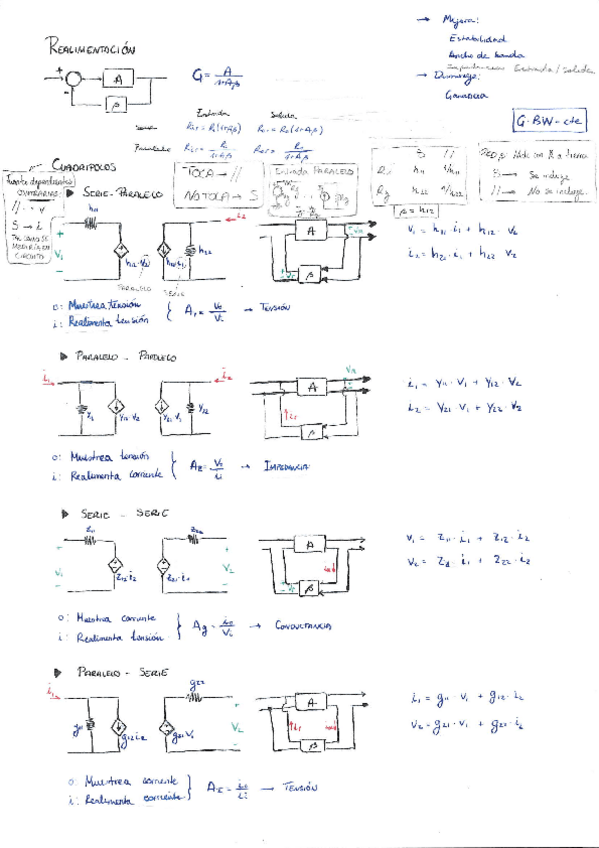 REALIMENTACIÓN
→ Mejora:
Estabilidad
Ancho de banda
Impedancias Entrada/Salida
→ Disminuye:
Ganancia
G·BW = cte
+
-
A
β
G = A / 1+Aβ
Entrada Salida
Serie Rif = Ri(1+Aβ) Rof = Ro(1+Aβ)
Paralelo Rif = Ri / 1+Aβ Rof = Ro / 1+Aβ
CUADRIPOLOS
Fuente dependiente
CIRCUITO
TOCA → //
NO TOCA → S
Entrada PARALELO
S //
h11
h22
β = h12
S → Se
// → No se incluye.
▶ SERIE - PARALELO
h11
V1
h12·V2
h21·i1
h22
i2
PARALELO
SERIE
A
β
V1 = h11·i1 + h12·V2
i2 = h21·i1 + h22·V2
o: Muestrea tensión
i: Realimenta tensión
Av = Vo / Vi → TENSIÓN
▶ PARALELO - PARALELO
i1
i2
Y12·V2
Y21·V1
Y22
A
β
i1 = Y11·V1 + Y12·V2
i2 = Y21·V1 + Y22·V2
o: Muestrea tensión
i: Realimenta corriente
Az = Vo / ii → IMPEDANCIA
▶ SERIE - SERIE
Z11
Z22
V1
Z12·i2
Z21·i1
V2
A
β
V1 = Z11·i1 + Z12·i2
V2 = Z21·i1 + Z22·i2
o: Muestrea corriente
i: Realimenta tensión
Ag = io / Vi → CONDUCTANCIA
▶ PARALELO - SERIE
i1
g22
g11
g12·i2
g21·V1
V2
A
β
i1 = g11·V1 + g12·i2
V2 = g21·V1 + g22·i2
o: Muestrea corriente
i: Realimenta corriente
AI = io / ii → TENSIÓN